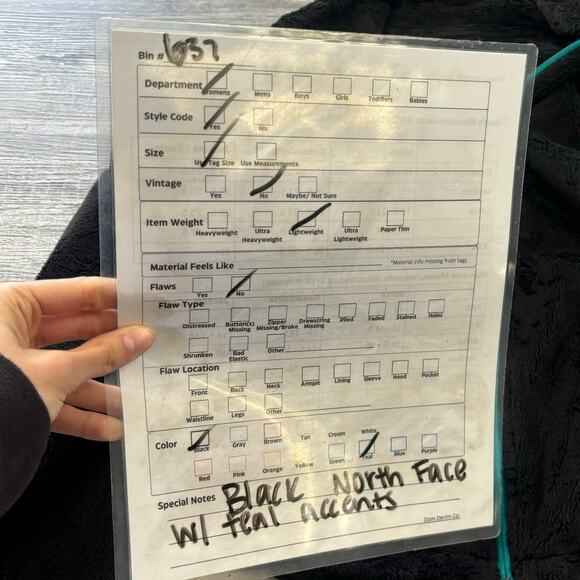 Bin # 6037
Department Womens Mens Boys Girls Toddlers Babies
Style Code Yes No
Size Use Tag Size Use Measurements
Vintage Yes No Maybe/ Not Sure
Item Weight Heavyweight Ultra Heavyweight Lightweight Ultra Lightweight Paper Thin
Material Feels Like *Material info missing from tags
Flaws Yes No
Flaw Type
Distressed Button(s) Missing Zipper Missing/Broke Drawstring Missing Piled Faded Stained Holes
Shrunken Bad Elastic Other
Flaw Location
Front Back Neck Armpit Lining Sleeve Hood Pocket
Waistline Legs Other
Color Black Gray Brown Tan Cream White
Red Pink Orange Yellow Green Teal Blue Purple
Special Notes Black North Face
w/ teal accents
Dom Denim Co.